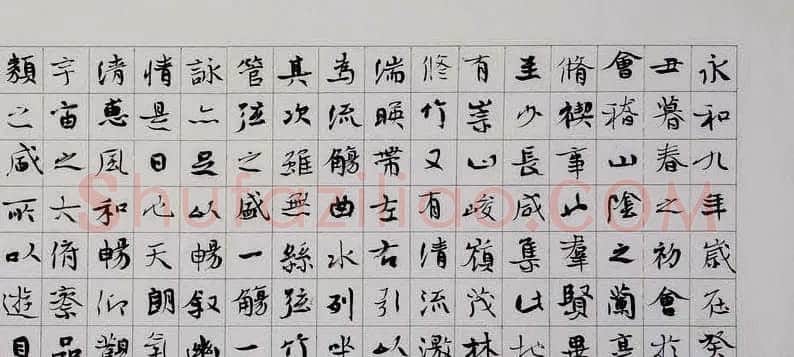 永和九年歲在癸
丑暮春之初會於
會稽山陰之蘭亭
脩禊事也羣賢畢
至少長咸集此地
有崇山峻嶺茂林
修竹又有清流激
湍暎帶左右引以
為流觴曲水列坐
其次雖無絲弦竹
管弦之盛一觴一
詠亦足以暢叙幽
情是日也天朗氣
清惠風和暢仰觀
宇宙之大俯察品
類之盛所以遊目
Shufaziliao.COM